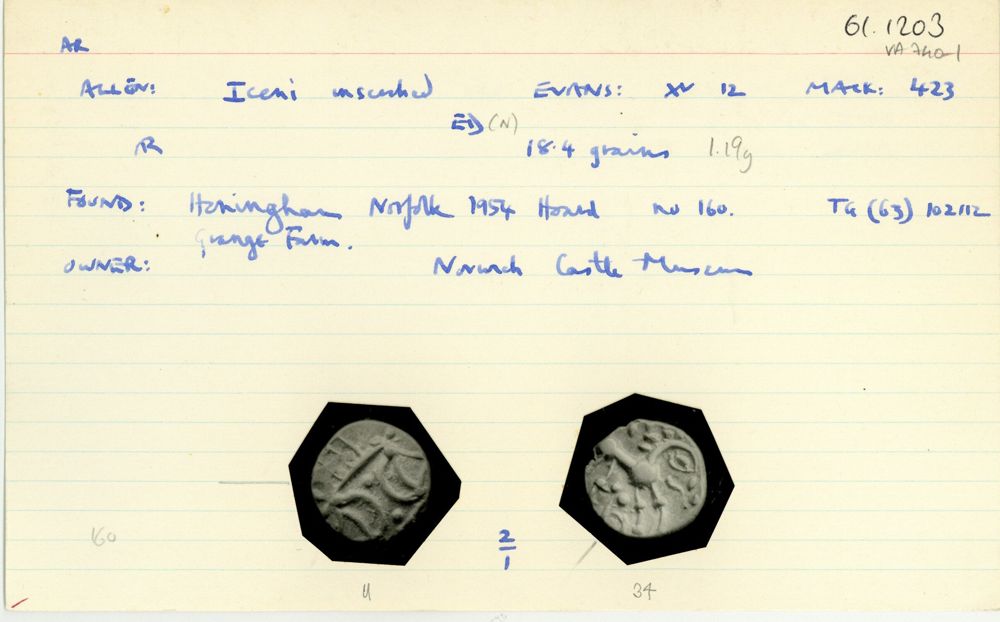 61.1203
VA 740-1
AR
ALLEN: Iceni inscribed EVANS: XV 12 MACK: 423
ED (N)
R 18.4 grains 1.19g
FOUND: Honingham Norfolk 1954 Hoard no 160. TG (63) 102112
Grange Farm.
OWNER: Norwich Castle Museum
160
2
1
34